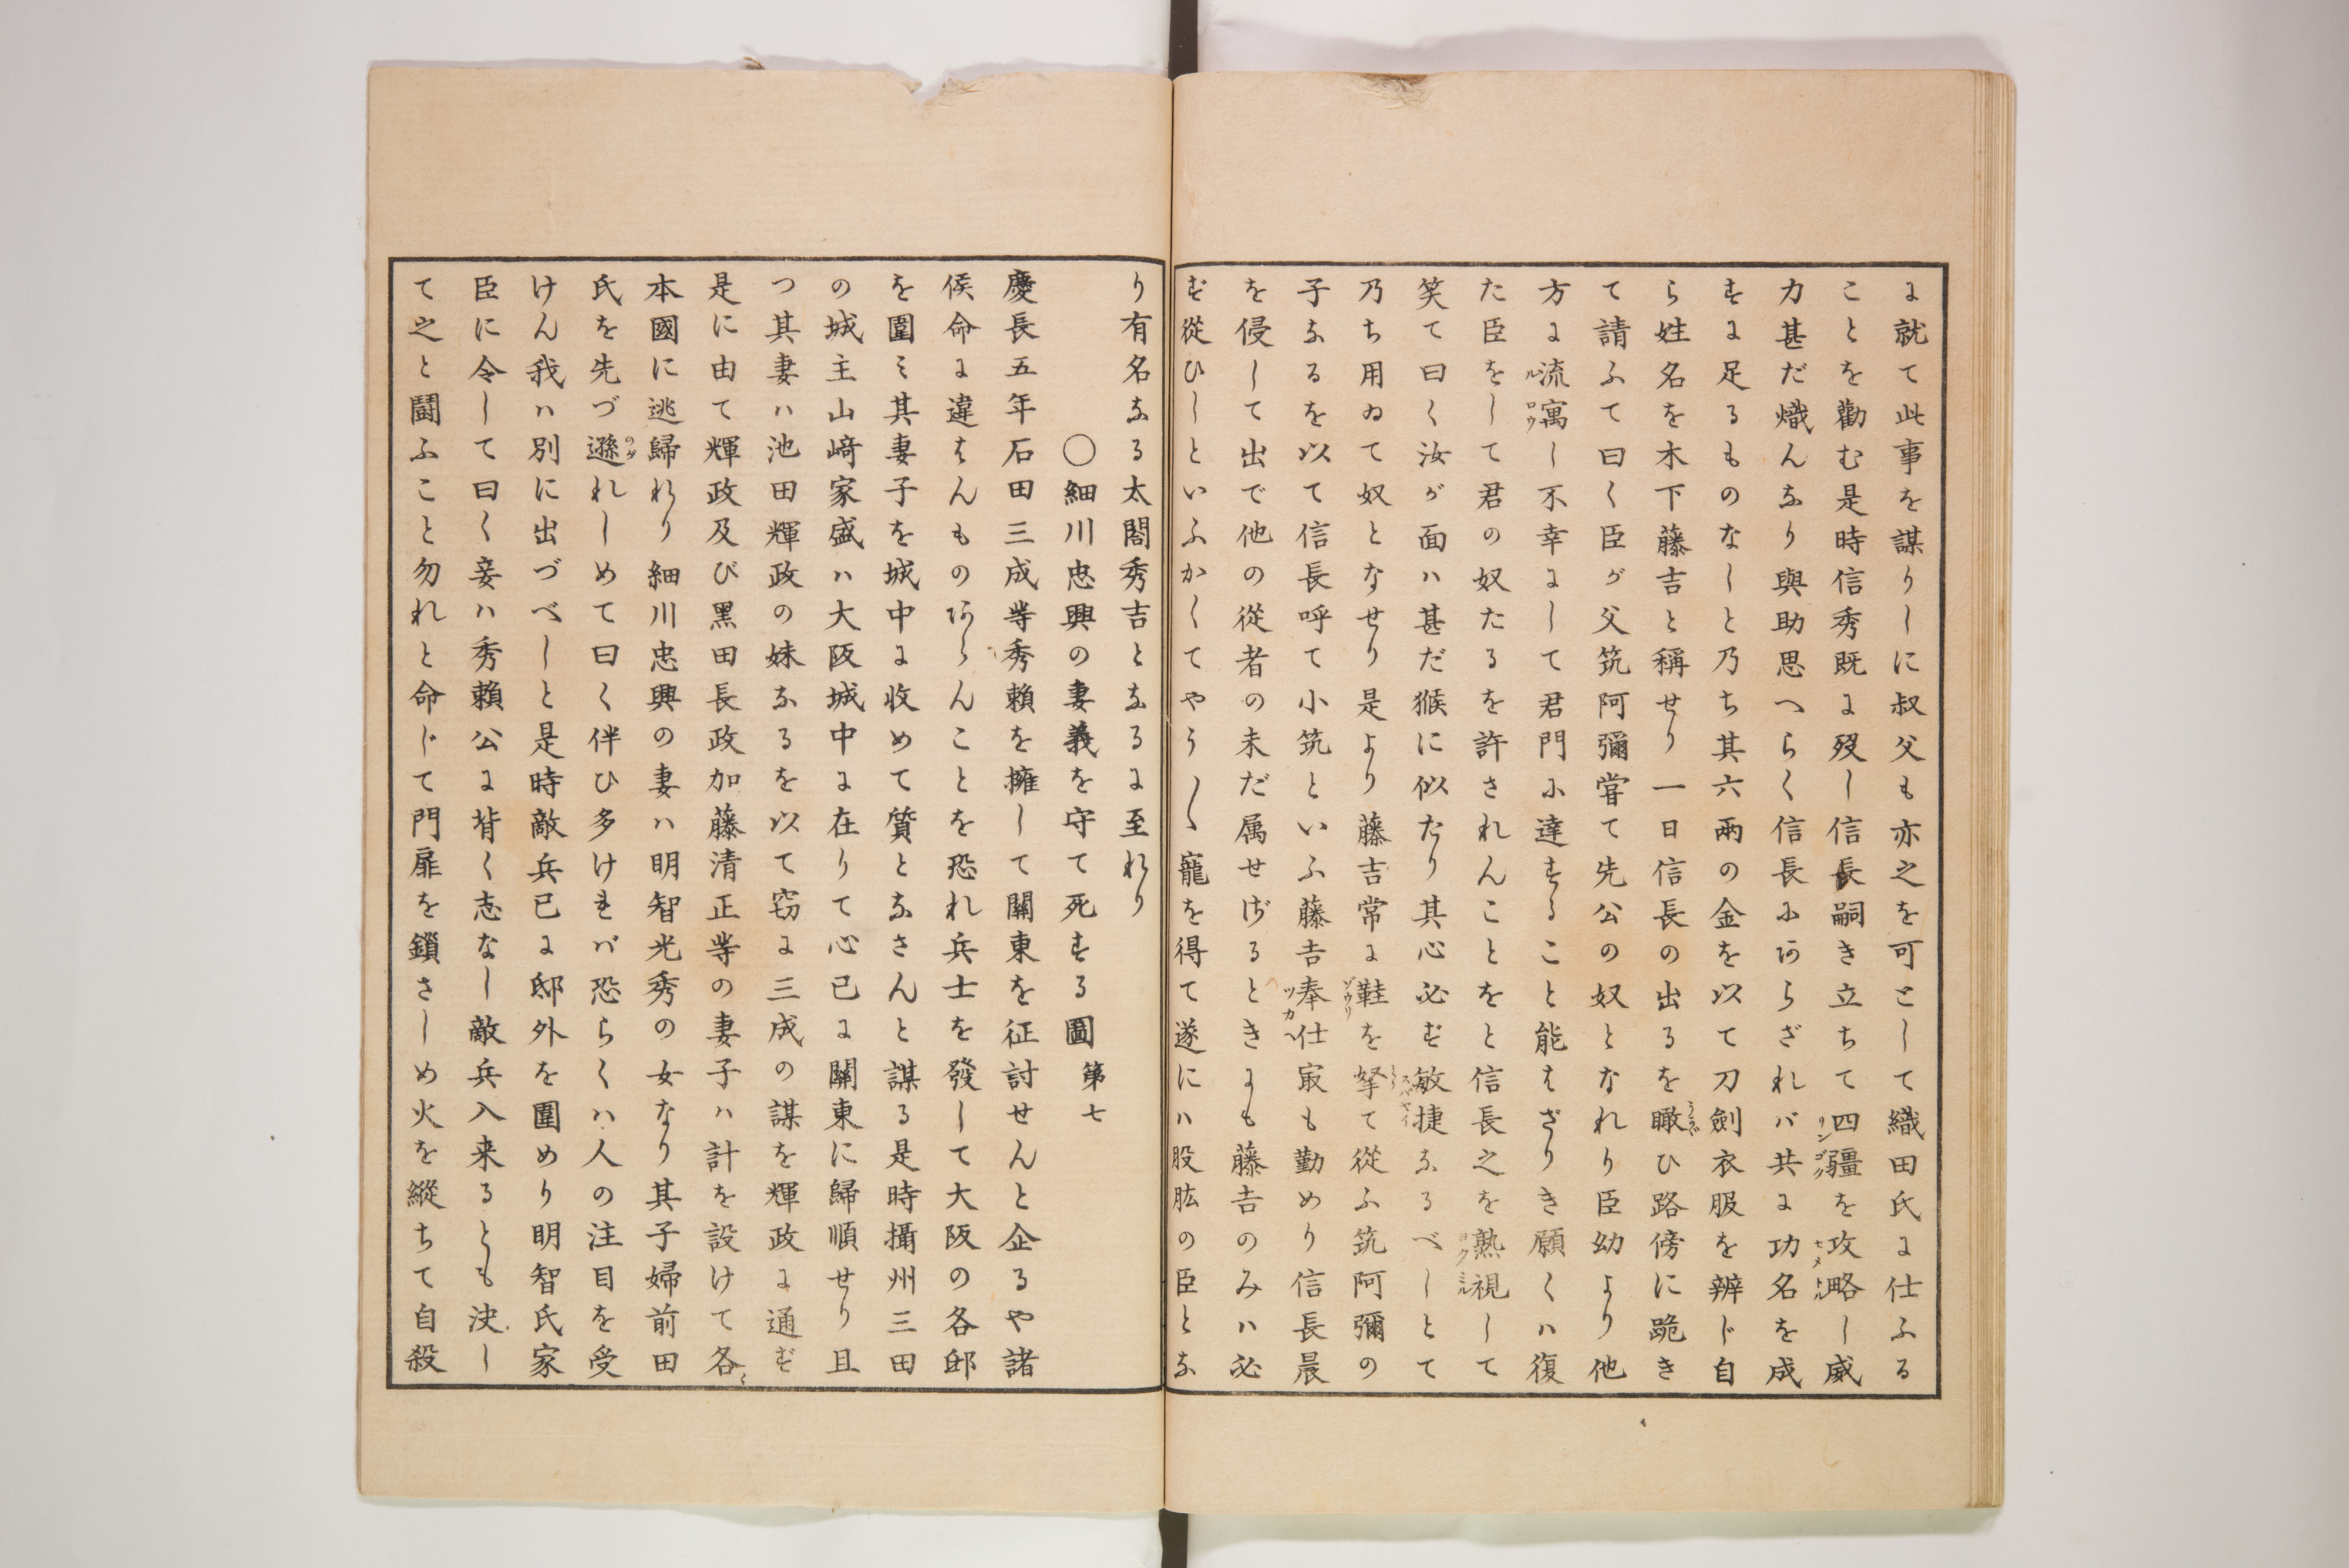 に就て此事を謀りしに叔父も亦之を可として織田氏に仕ふる
ことを勸む是時信秀既に歿し信長嗣き立ちて四疆を攻略し威
力甚だ熾んなり與助思へらく信長にあらざれバ共に功名を成
すに足るものなしと乃ち其六兩の金を以て刀劍衣服を辨じ自
ら姓名を木下藤吉と稱せり一日信長の出るを瞰ひ路傍に跪き
て請ふて曰く臣が父筑阿彌甞て先公の奴となれり臣幼より他
方に流寓し不幸にして君門に達すること能はざりき願くハ復
た臣をして君の奴たるを許されんことをと信長之を熟視して
笑て曰く汝が面ハ甚だ猴に似たり其心必ず敏捷なるべしとて
乃ち用ゐて奴となせり是より藤吉常に鞋を拏て從ふ筑阿彌の
子なるを以て信長呼て小筑といふ藤吉奉仕㝡も勤めり信長晨
を侵して出で他の從者の未だ属せざるときにも藤吉のみハ必
ず從ひしといふかくてやう〳〵寵を得て遂にハ股肱の臣とな
り有名なる太閤秀吉となるに至れり
○細川忠興の妻義を守て死する圖 第七
慶長五年石田三成等秀賴を擁して關東を征討せんと企るや諸
侯命に違はんものあらんことを恐れ兵士を發して大阪の各邸
を圍ミ其妻子を城中に收めて質となさんと謀る是時攝州三田
の城主山﨑家盛ハ大阪城中に在りて心已に關東に歸順せり且
つ其妻ハ池田輝政の妹なるを以て窃に三成の謀を輝政に通ず
是に由て輝政及び黑田長政加藤清正等の妻子ハ計を設けて各〻
本國に逃歸れり細川忠興の妻ハ明智光秀の女なり其子婦前田
氏を先づ遜れしめて曰く伴ひ多けれバ恐らくハ人の注目を受
けん我ハ別に出づべしと是時敵兵已に邸外を圍めり明智氏家
臣に令して曰く妾ハ秀賴公に背く志なし敵兵入来るとも决し
て之と鬪ふこと勿れと命じて門扉を鎖さしめ火を縱ちて自殺